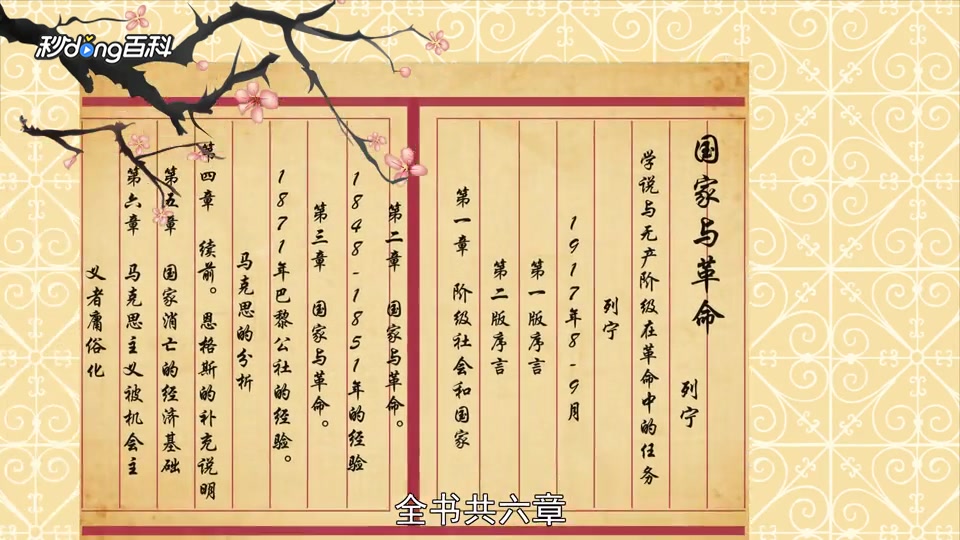 秒dong百科
国家与革命
列宁
学说与无产阶级在革命中的任务
列宁
1917年8-9月
第一版序言
第二版序言
第一章 阶级社会和国家
第二章 国家与革命。
1848-1851年的经验
第三章 国家与革命。
1871年巴黎公社的经验。
马克思的分析
第四章 续前。恩格斯的补充说明
第五章 国家消亡的经济基础
第六章 马克思主义被机会主
义者庸俗化
全书共六章